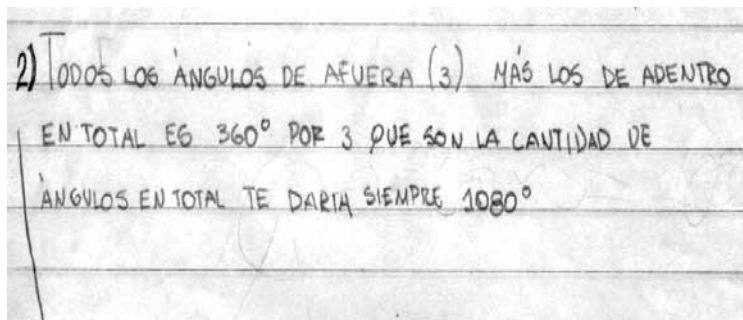 2) TODOS LOS ÁNGULOS DE AFUERA (3) MÁS LOS DE ADENTRO
EN TOTAL ES 360° POR 3 QUE SON LA CANTIDAD DE
ÁNGULOS EN TOTAL TE DARIA SIEMPRE 1080°